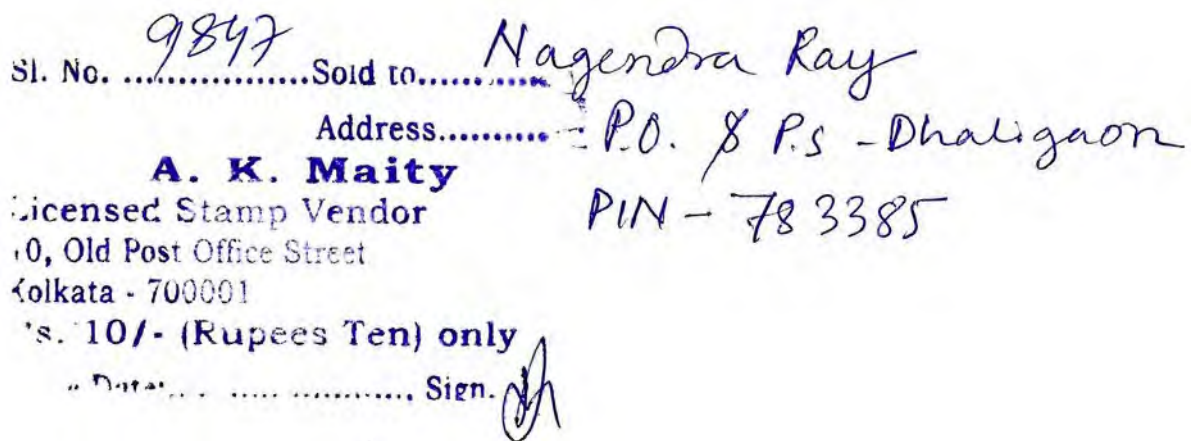 Sl. No. 9847 Sold to Nagendra Ray
Address P.O. & P.S - Dhaligaon
A. K. Maity PIN - 783385
Licensed Stamp Vendor
10, Old Post Office Street
Kolkata - 700001
Rs. 10/- (Rupees Ten) only
Date Sign.